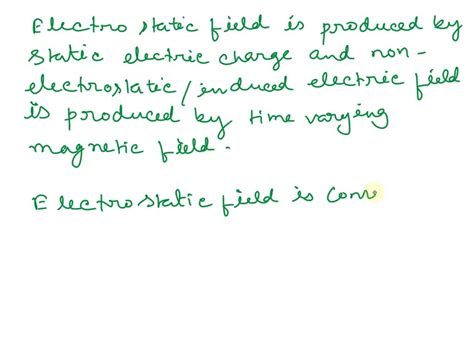 Electrostatic field is produced by
static electric charge and non-
electrostatic/induced electric field
is produced by time varying
magnetic field.
Electrostatic field is conv